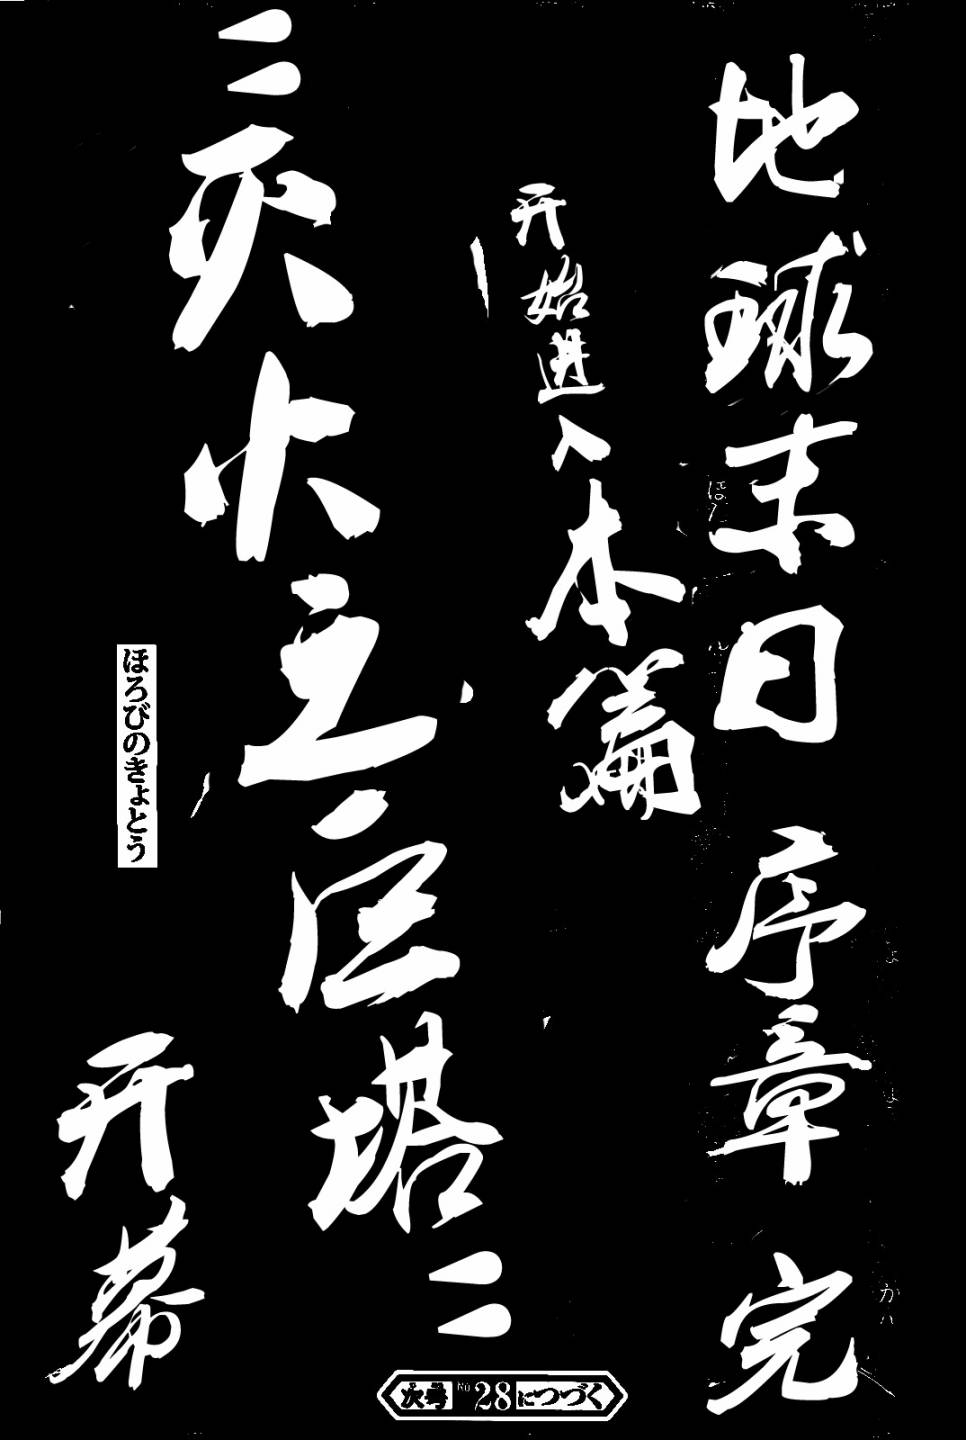 地球末日 序章 完
开始进入本篇
灭火之巨塔
ほろびのきょとう
开幕
次号No28につづく